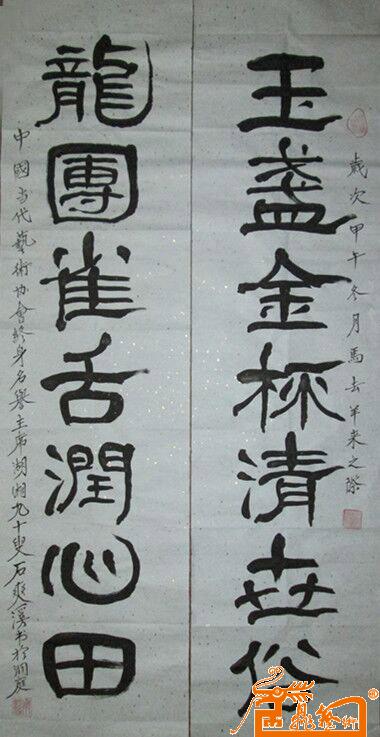 歲次甲午冬月馬去羊来之際
玉盞金杯清世俗
龍團雀舌潤心田
中國当代藝術协會終身名譽主席湖湘九十叟石爽溪书於洞庭